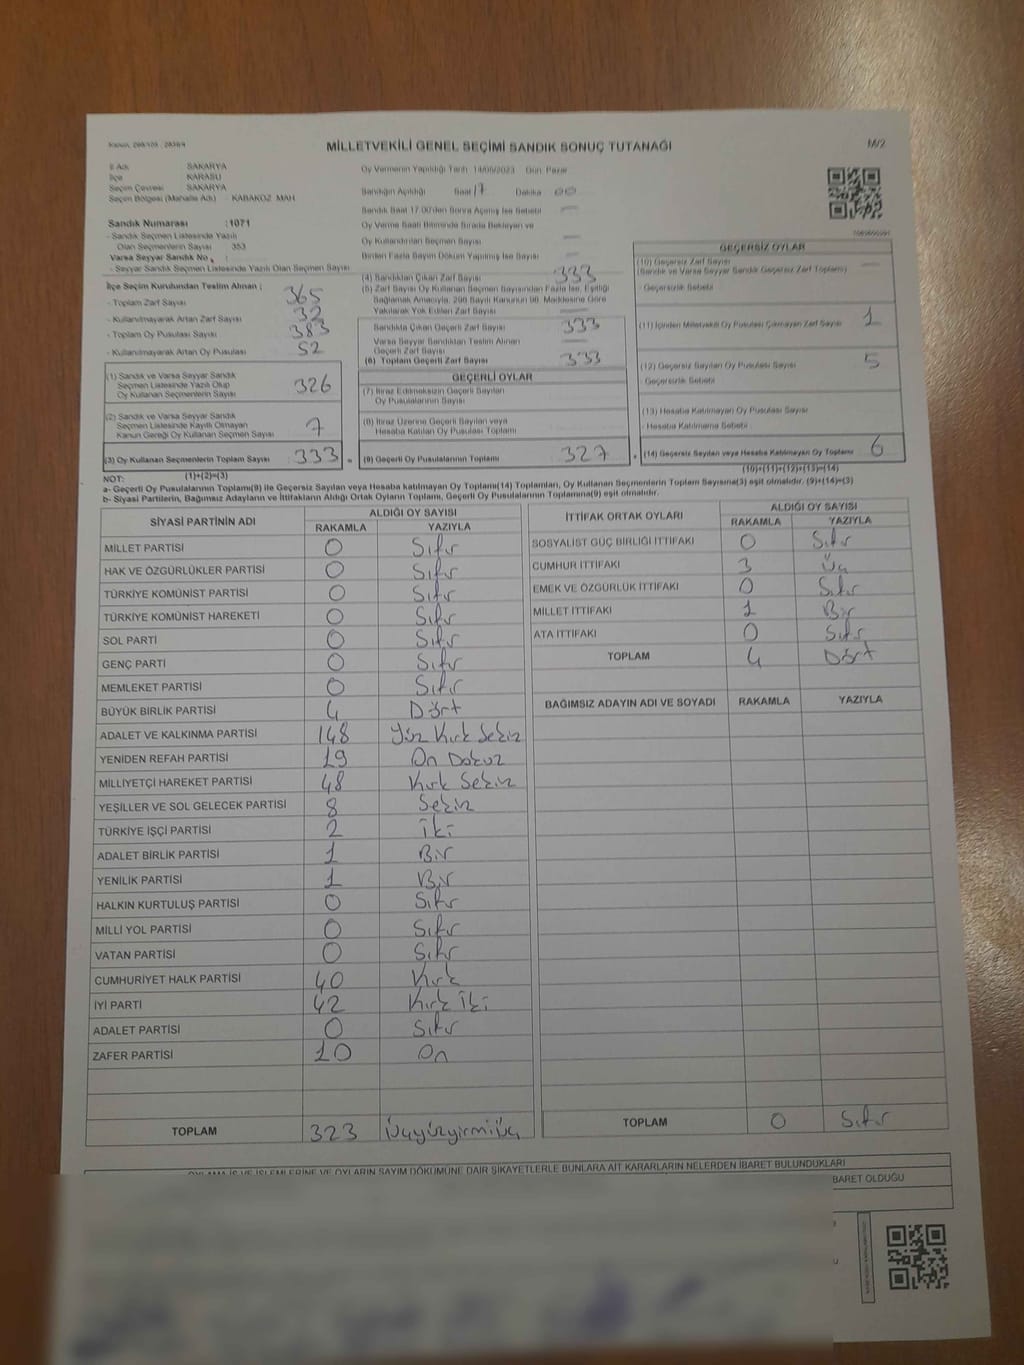 MİLLETVEKİLİ GENEL SEÇİMİ SANDIK SONUÇ TUTANAĞI
M/2
İl Adı : SAKARYA
İlçe : KARASU
Seçim Çevresi : SAKARYA
Seçim Bölgesi (Mahalle Adı) : KABAKOZ MAH
Sandık Numarası :1071
- Sandık Seçmen Listesinde Yazılı
Olan Seçmenlerin Sayısı : 353
Varsa Seyyar Sandık No :
- Seyyar Sandık Seçmen Listesinde Yazılı Olan Seçmen Sayısı
İlçe Seçim Kurulundan Teslim Alınan ;
- Toplam Zarf Sayısı 365
- Kullanılmayarak Artan Zarf Sayısı 32
- Toplam Oy Pusulası Sayısı 383
- Kullanılmayarak Artan Oy Pusulası 52
(1) Sandık ve Varsa Seyyar Sandık
Seçmen Listesinde Yazılı Olup
Oy Kullanan Seçmenlerin Sayısı 326
(2) Sandık ve Varsa Seyyar Sandık
Seçmen Listesinde Kayıtlı Olmayan
Kanun Gereği Oy Kullanan Seçmen Sayısı 7
(3) Oy Kullanan Seçmenlerin Toplam Sayısı 333 =
Oy Vermenin Yapıldığı Tarih :14/05/2023 Gün: Pazar
Sandığın Açıldığı Saat 17 Dakika 00
Sandık Saat 17.00'den Sonra Açılmış İse Sebebi —
Oy Verme Saati Bitiminde Sırada Bekleyen ve
Oy Kullandırılan Seçmen Sayısı —
Birden Fazla Sayım Döküm Yapılmış İse Sayısı —
(4) Sandıktan Çıkan Zarf Sayısı 333
(5) Zarf Sayısı Oy Kullanan Seçmen Sayısından Fazla İse, Eşitliği
Sağlamak Amacıyla, 298 Sayılı Kanunun 98. Maddesine Göre
Yakılarak Yok Edilen Zarf Sayısı —
Sandıkta Çıkan Geçerli Zarf Sayısı 333
Varsa Seyyar Sandıktan Teslim Alınan
Geçerli Zarf Sayısı —
(6) Toplam Geçerli Zarf Sayısı 333
GEÇERLİ OYLAR
(7) İtiraz Edilmeksizin Geçerli Sayılan
Oy Pusulalarının Sayısı
(8) İtiraz Üzerine Geçerli Sayılan veya
Hesaba Katılan Oy Pusulası Toplamı
(9) Geçerli Oy Pusulalarının Toplamı 327 +
GEÇERSİZ OYLAR
(10) Geçersiz Zarf Sayısı
(Sandık ve Varsa Seyyar Sandık Geçersiz Zarf Toplamı) —
- Geçersizlik Sebebi
(11) İçinden Milletvekili Oy Pusulası Çıkmayan Zarf Sayısı 1
(12) Geçersiz Sayılan Oy Pusulası Sayısı 5
Geçersizlik Sebebi
(13) Hesaba Katılmayan Oy Pusulası Sayısı
- Hesaba Katılmama Sebebi
(14) Geçersiz Sayılan veya Hesaba Katılmayan Oy Toplamı 6
NOT: (1)+(2)=(3) (10)+(11)+(12)+(13)=(14)
a- Geçerli Oy Pusulalarının Toplamı(9) ile Geçersiz Sayılan veya Hesaba katılmayan Oy Toplamı(14) Toplamları, Oy Kullanan Seçmenlerin Toplam Sayısına(3) eşit olmalıdır. (9)+(14)=(3)
b- Siyasi Partilerin, Bağımsız Adayların ve İttifakların Aldığı Ortak Oyların Toplamı, Geçerli Oy Pusulalarının Toplamına(9) eşit olmalıdır.
SİYASİ PARTİNİN ADI ALDIĞI OY SAYISI
RAKAMLA YAZIYLA
MİLLET PARTİSİ 0 Sıfır
HAK VE ÖZGÜRLÜKLER PARTİSİ 0 Sıfır
TÜRKİYE KOMÜNİST PARTİSİ 0 Sıfır
TÜRKİYE KOMÜNİST HAREKETİ 0 Sıfır
SOL PARTİ 0 Sıfır
GENÇ PARTİ 0 Sıfır
MEMLEKET PARTİSİ 0 Sıfır
BÜYÜK BİRLİK PARTİSİ 4 Dört
ADALET VE KALKINMA PARTİSİ 148 Yüz Kırk Sekiz
YENİDEN REFAH PARTİSİ 19 On Dokuz
MİLLİYETÇİ HAREKET PARTİSİ 48 Kırk Sekiz
YEŞİLLER VE SOL GELECEK PARTİSİ 8 Sekiz
TÜRKİYE İŞÇİ PARTİSİ 2 İki
ADALET BİRLİK PARTİSİ 1 Bir
YENİLİK PARTİSİ 1 Bir
HALKIN KURTULUŞ PARTİSİ 0 Sıfır
MİLLİ YOL PARTİSİ 0 Sıfır
VATAN PARTİSİ 0 Sıfır
CUMHURİYET HALK PARTİSİ 40 Kırk
İYİ PARTİ 42 Kırk İki
ADALET PARTİSİ 0 Sıfır
ZAFER PARTİSİ 10 On
TOPLAM 323 Üçyüzyirmiüç
İTTİFAK ORTAK OYLARI ALDIĞI OY SAYISI
RAKAMLA YAZIYLA
SOSYALİST GÜÇ BİRLİĞİ İTTİFAKI 0 Sıfır
CUMHUR İTTİFAKI 3 Üç
EMEK VE ÖZGÜRLÜK İTTİFAKI 0 Sıfır
MİLLET İTTİFAKI 1 Bir
ATA İTTİFAKI 0 Sıfır
TOPLAM 4 Dört
BAĞIMSIZ ADAYIN ADI VE SOYADI RAKAMLA YAZIYLA
TOPLAM 0 Sıfır
OYLAMA İŞ VE İŞLEMLERİNE VE OYLARIN SAYIM DÖKÜMÜNE DAİR ŞİKAYETLERLE BUNLARA AİT KARARLARIN NELERDEN İBARET BULUNDUKLARI
BARET OLDUĞU